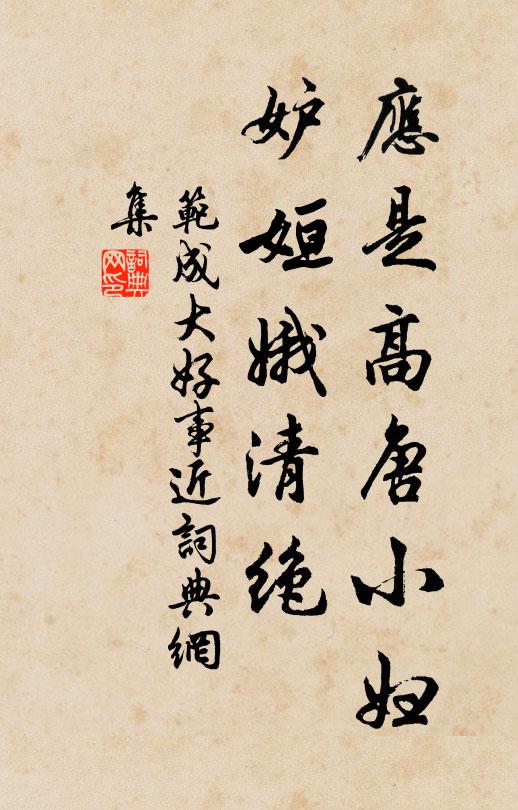 應是高唐小妇
妒姮娥清绝
範成大好事近詞典網
集
詞典網印